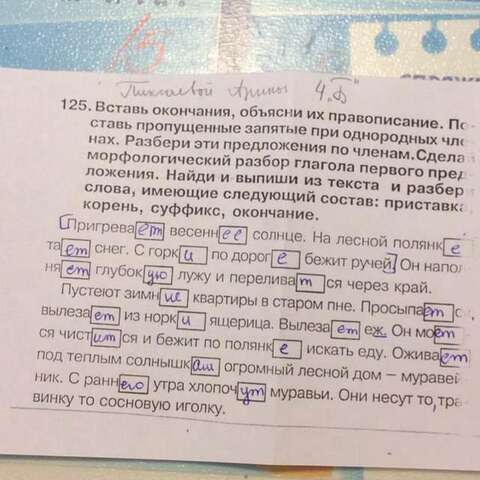 Пикалевой Арины 4 "Б"
125. Вставь окончания, объясни их правописание. По-
ставь пропущенные запятые при однородных чле
нах. Разбери эти предложения по членам.Сделай
морфологический разбор глагола первого пред
ложения. Найди и выпиши из текста и разбери
слова, имеющие следующий состав: приставка,
корень, суффикс, окончание.
[Пригревает весеннее солнце. На лесной полянке
тает снег. С горки по дороге бежит ручей] Он напол
няет глубокую лужу и переливатся через край.
Пустеют зимние квартиры в старом пне. Просыпаетс
вылезает из норки ящерица. Вылезает еж. Он моет
ся чистится и бежит по полянке искать еду. Оживает
под теплым солнышкаш огромный лесной дом – муравей
ник. С раннего утра хлопочут муравьи. Они несут то, тра
винку то сосновую иголку.